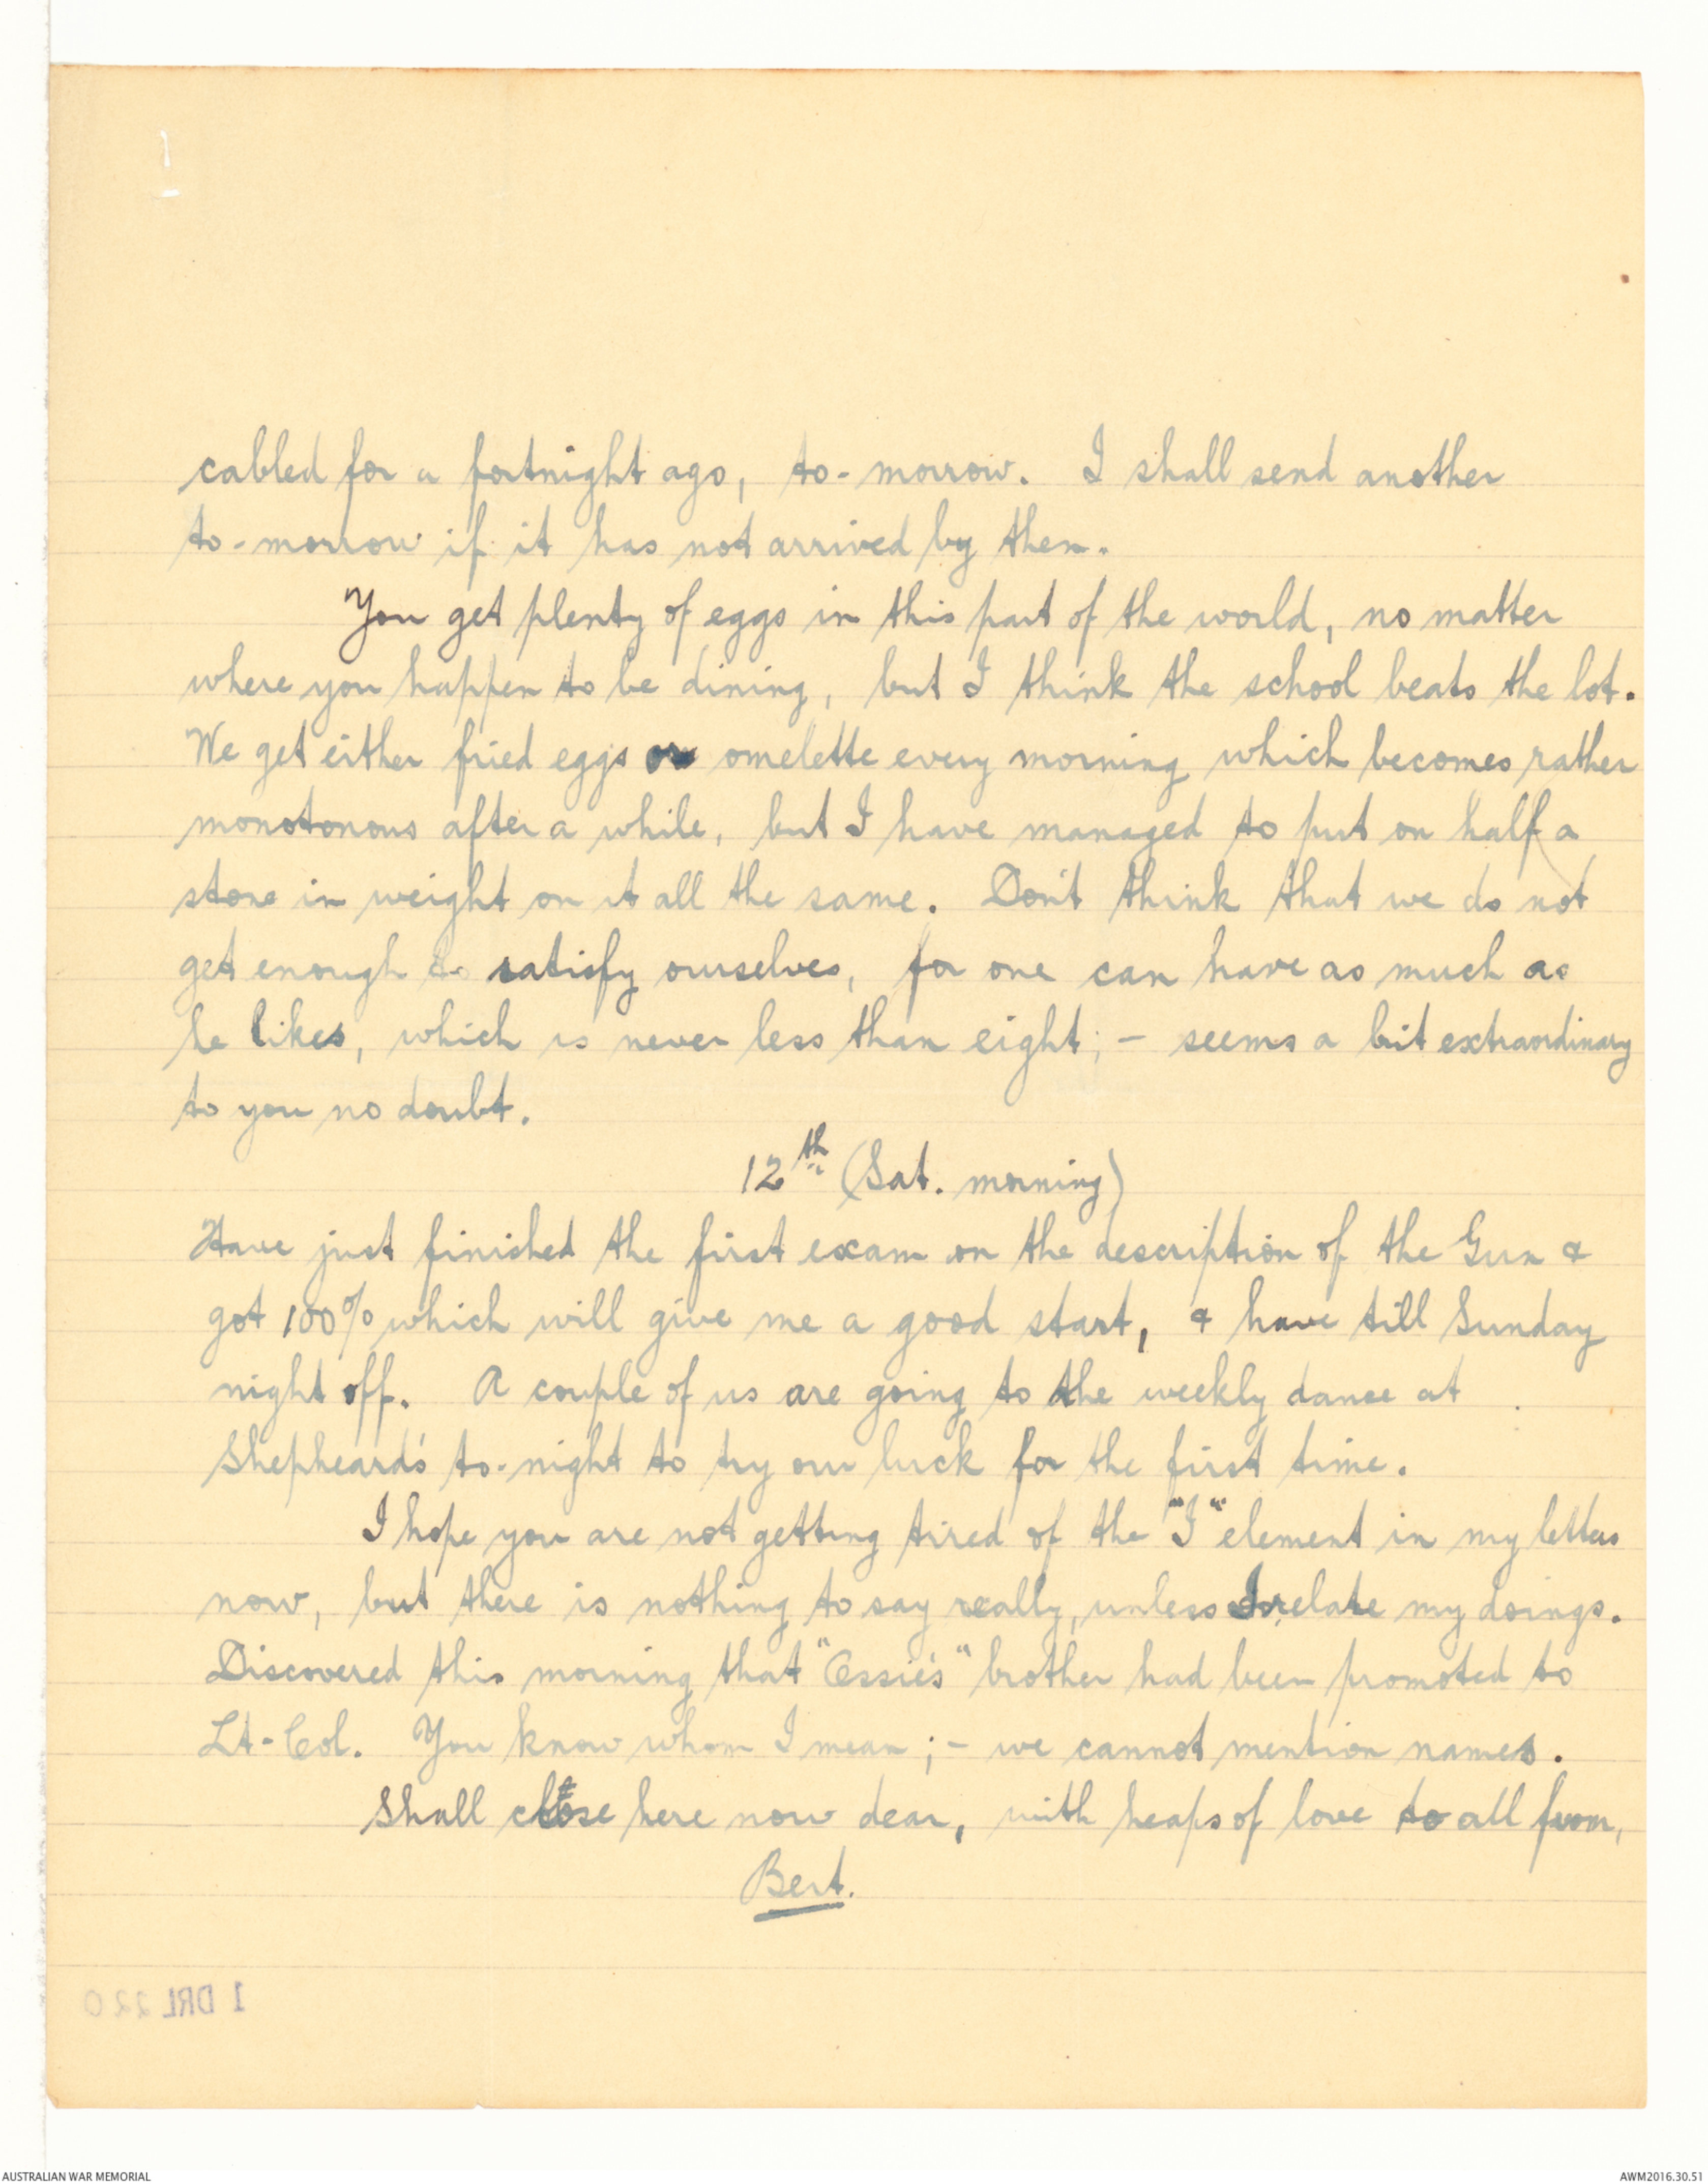 cabled for a fortnight ago, to-morrow. I shall send another
to-morrow if it has not arrived by then.
You get plenty of eggs in this part of the world, no matter
where you happen to be dining, but I think the school beats the lot.
We get either fried eggs or omelette every morning which becomes rather
monotonous after a while, but I have managed to put on half a
stone in weight on it all the same. Don't think that we do not
get enough to satisfy ourselves, for one can have as much as
he likes, which is never less than eight; - seems a bit extraordinary
to you no doubt.
12th (Sat. morning)
Have just finished the first exam on the description of the Gun &
got 100% which will give me a good start, & have till Sunday
night off. A couple of us are going to the weekly dance at
Shepheard's to-night to try our luck for the first time.
I hope you are not getting tired of the "I" element in my letters
now, but there is nothing to say really, unless I relate my doings.
Discovered this morning that "Essie's" brother had been promoted to
Lt-Col. You know whom I mean; - we cannot mention names.
Shall close here now dear, with heaps of love to all from,
Bert.
1 DRL 220
AUSTRALIAN WAR MEMORIAL
AWM2016.30.51